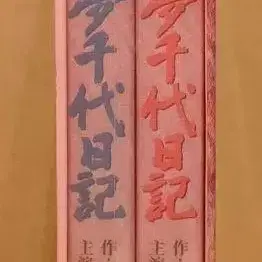 夢千代日記
作・
主演
夢千代日記
作・
主演